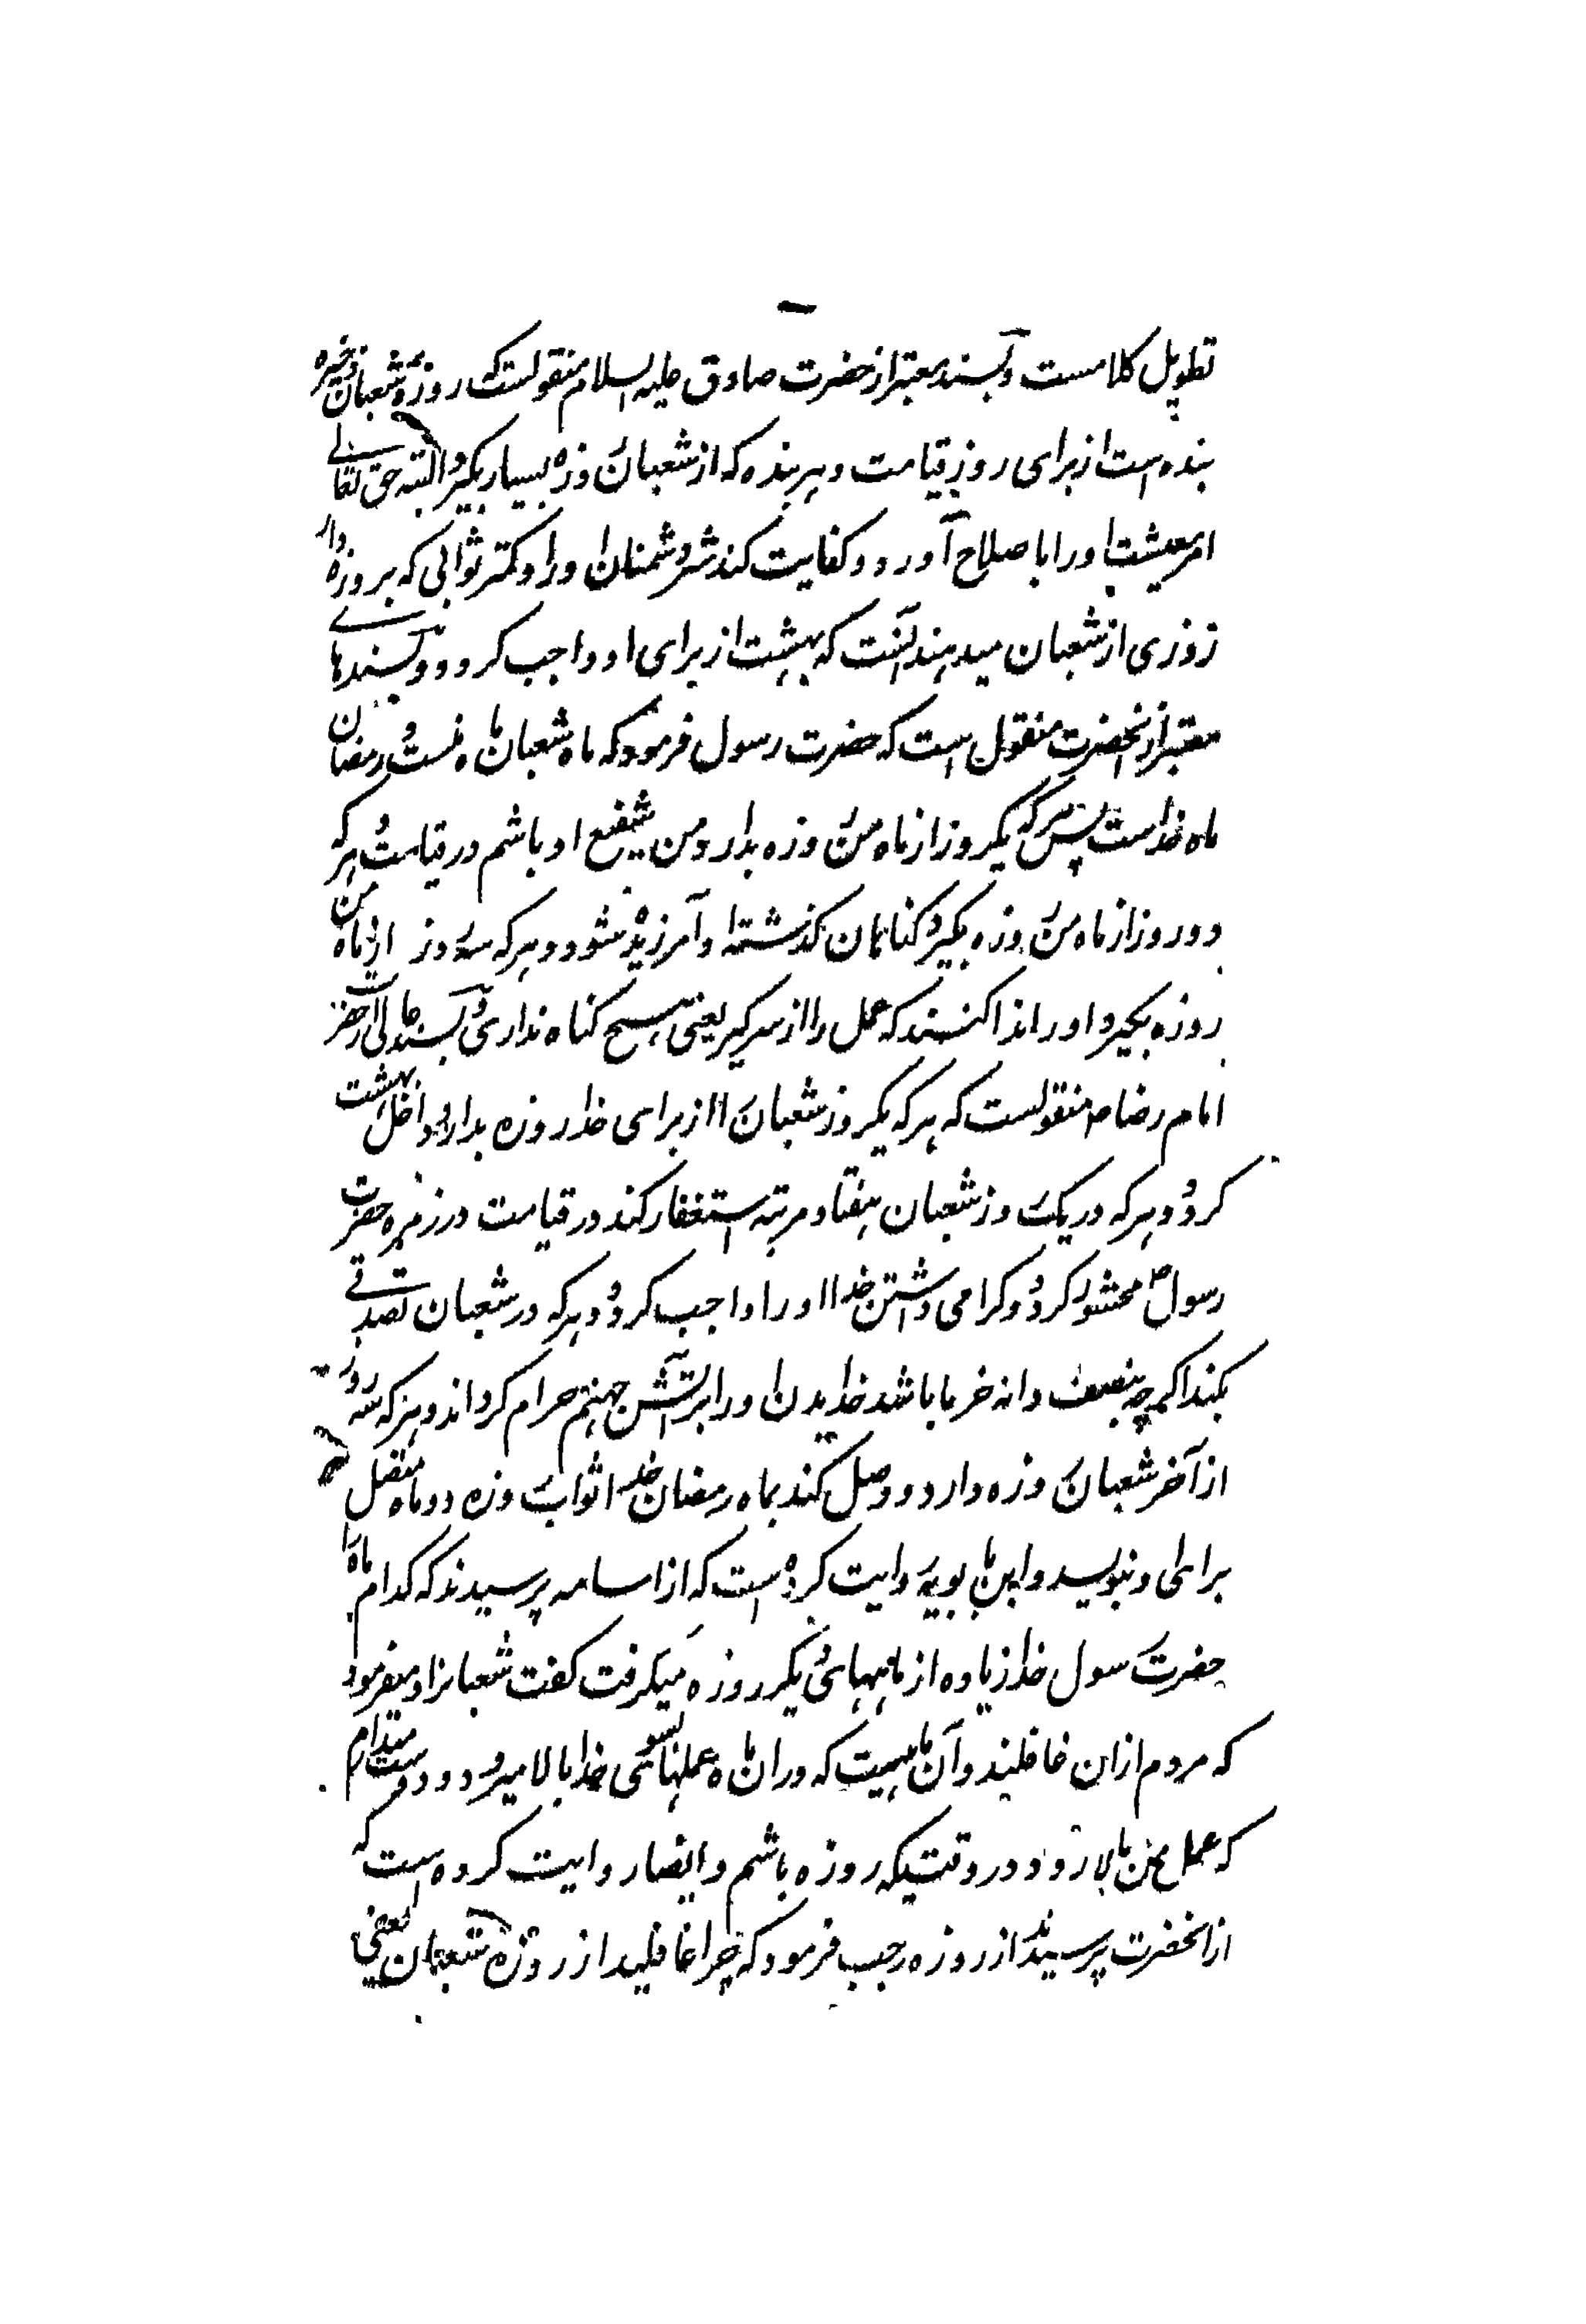 تطویل کلامست و بسند معتبر از حضرت صادق علیه السلام منقولست که روزهٔ شعبان ذخیره
بنده است از برای روز قیامت و هر بنده که از شعبان روزه بسیار بگیرد البته حق تعالی
امر معیشت او را باصلاح آورد و کفایت کند شر دشمنان او را و کمتر ثوابی که بروزه دار
روزی از شعبان میدهند آنست که بهشت از برای او واجب گردد و بسندهای
معتبر از آنحضرت منقول است که حضرت رسول فرمود که ماه شعبان ماه منست و رمضان
ماه خداست پس هرکه یکروز از ماه من روزه بدارد من شفیع او باشم در قیامت و هرکه
دو روز از ماه من روزه بگیرد گناهان گذشته او آمرزیده شود و هرکه سه روز از ماه من
روزه بگیرد او را ندا کنند که عمل را از سر گیر یعنی هیچ گناه نداری و بسند عالی از حضرت
امام رضا ع منقولست که هرکه یکروز شعبان را از برای خدا روزه بدارد داخل بهشت
گردد و هرکه در یک روز شعبان هفتاد مرتبه استغفار کند در قیامت در زمره حضرت
رسول ص محشور گردد و گرامی داشتن خدا او را واجب گردد و هرکه در شعبان تصدقی
بکند اگرچه بنصف دانه خرما باشد خدا بدن او را بر آتش جهنم حرام گرداند و هرکه سه روز
از آخر شعبان روزه دارد و وصل کند بماه رمضان خدا ثواب روزه دو ماه متصل
برای او بنویسد و ابن بابویه روایت کرده است که از اسامه پرسیدند که کدام ماه را
حضرت رسول خدا زیاده از ماههای دیگر روزه میگرفت گفت شعبانرا و میفرمود
که مردم ازان غافلند و آن ماهیست که دران ماه عملها بسوی خدا بالا میرود و دوست میدارم
که عمل من بالا رود در وقتیکه روزه باشم و ایضا روایت کرده است که
از آنحضرت پرسیدند از روزه رجب فرمود که چرا غافلید از روزه شعبان یعنی